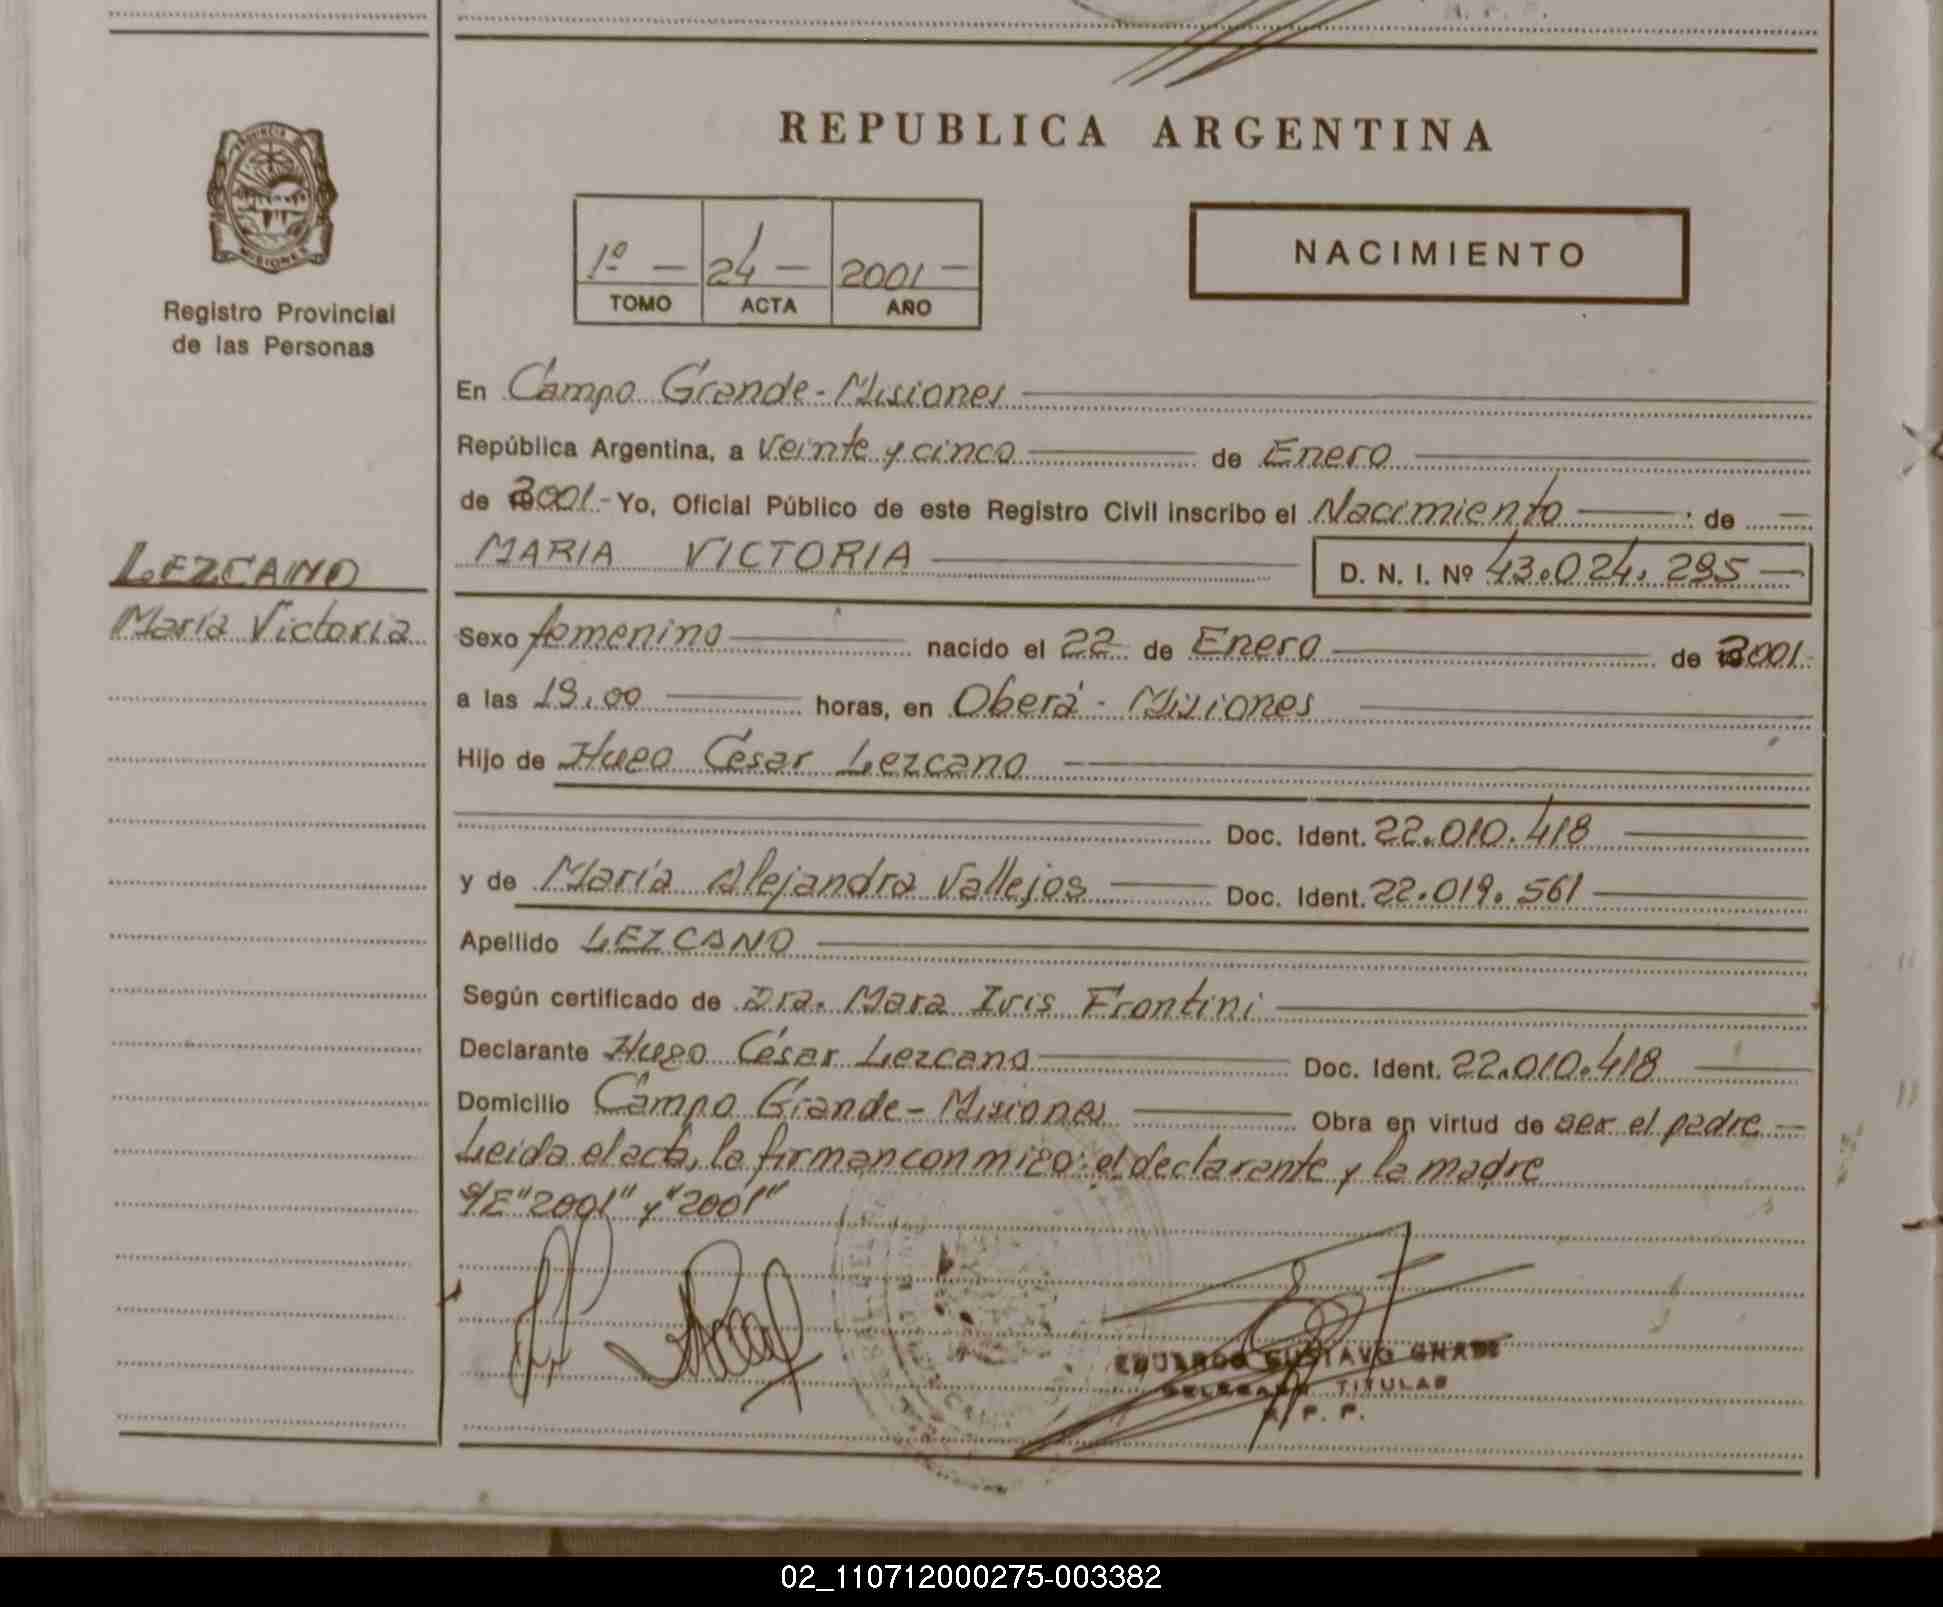 REPUBLICA ARGENTINA
1º — 24 — 2001 —
TOMO ACTA AÑO
NACIMIENTO
PROVINCIA
MISIONES
Registro Provincial
de las Personas
LEZCANO
María Victoria
En Campo Grande - Misiones
República Argentina, a Veinte y cinco de Enero
de 2001 - Yo, Oficial Público de este Registro Civil inscribo el Nacimiento de
MARIA VICTORIA D. N. I. Nº 43.024.295 —
Sexo femenino nacido el 22 de Enero de 2001 -
a las 19,00 horas, en Oberá - Misiones
Hijo de Hugo César Lezcano
Doc. Ident. 22.010.418
y de María Alejandra Vallejos Doc. Ident. 22.019.561
Apellido LEZCANO
Según certificado de Dra. Mara Iris Frontini
Declarante Hugo César Lezcano Doc. Ident. 22.010.418
Domicilio Campo Grande - Misiones Obra en virtud de ser el padre —
Leida el acta, la firman conmigo: el declarante y la madre
S/E "2001" y "2001"
EDUARDO GUSTAVO
DELEGADO TITULAR
R. P. P.
02_110712000275-003382